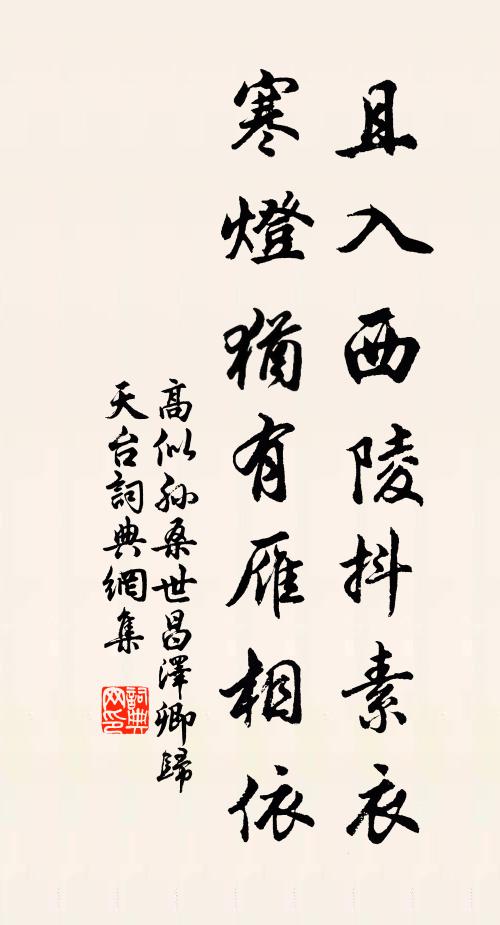 且入西陵抖素衣
寒燈猶有雁相依
高似孫桑世昌澤卿歸
天台詞典網集
詞典網印